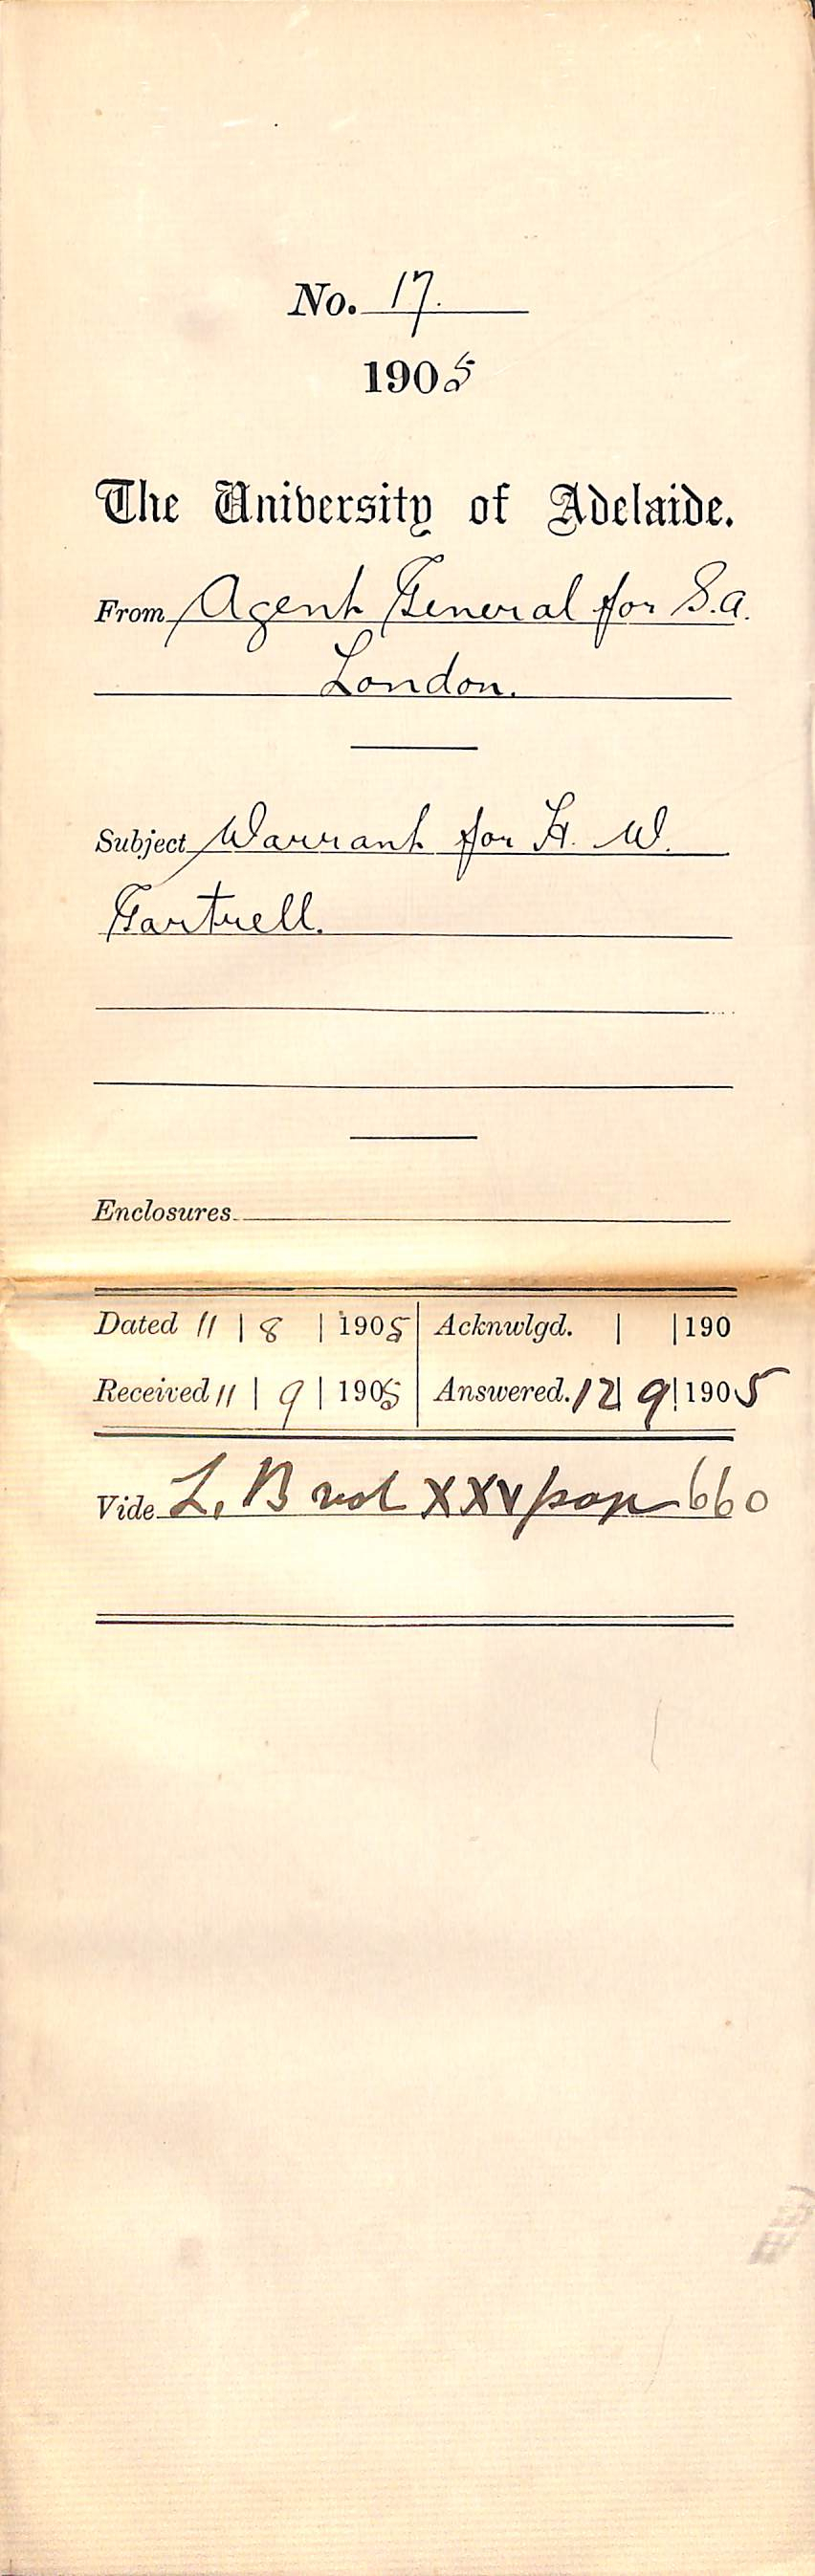 No. 17.
1905
The University of Adelaide.
From Agent General for S.A.
London.
Subject Warrant for H. W.
Gartrell.
Enclosures
Dated 11 | 8 | 1905 Acknwlgd. | | 190
Received 11 | 9 | 1905 Answered. 12 | 9 | 1905
Vide L. B vol XXV page 660